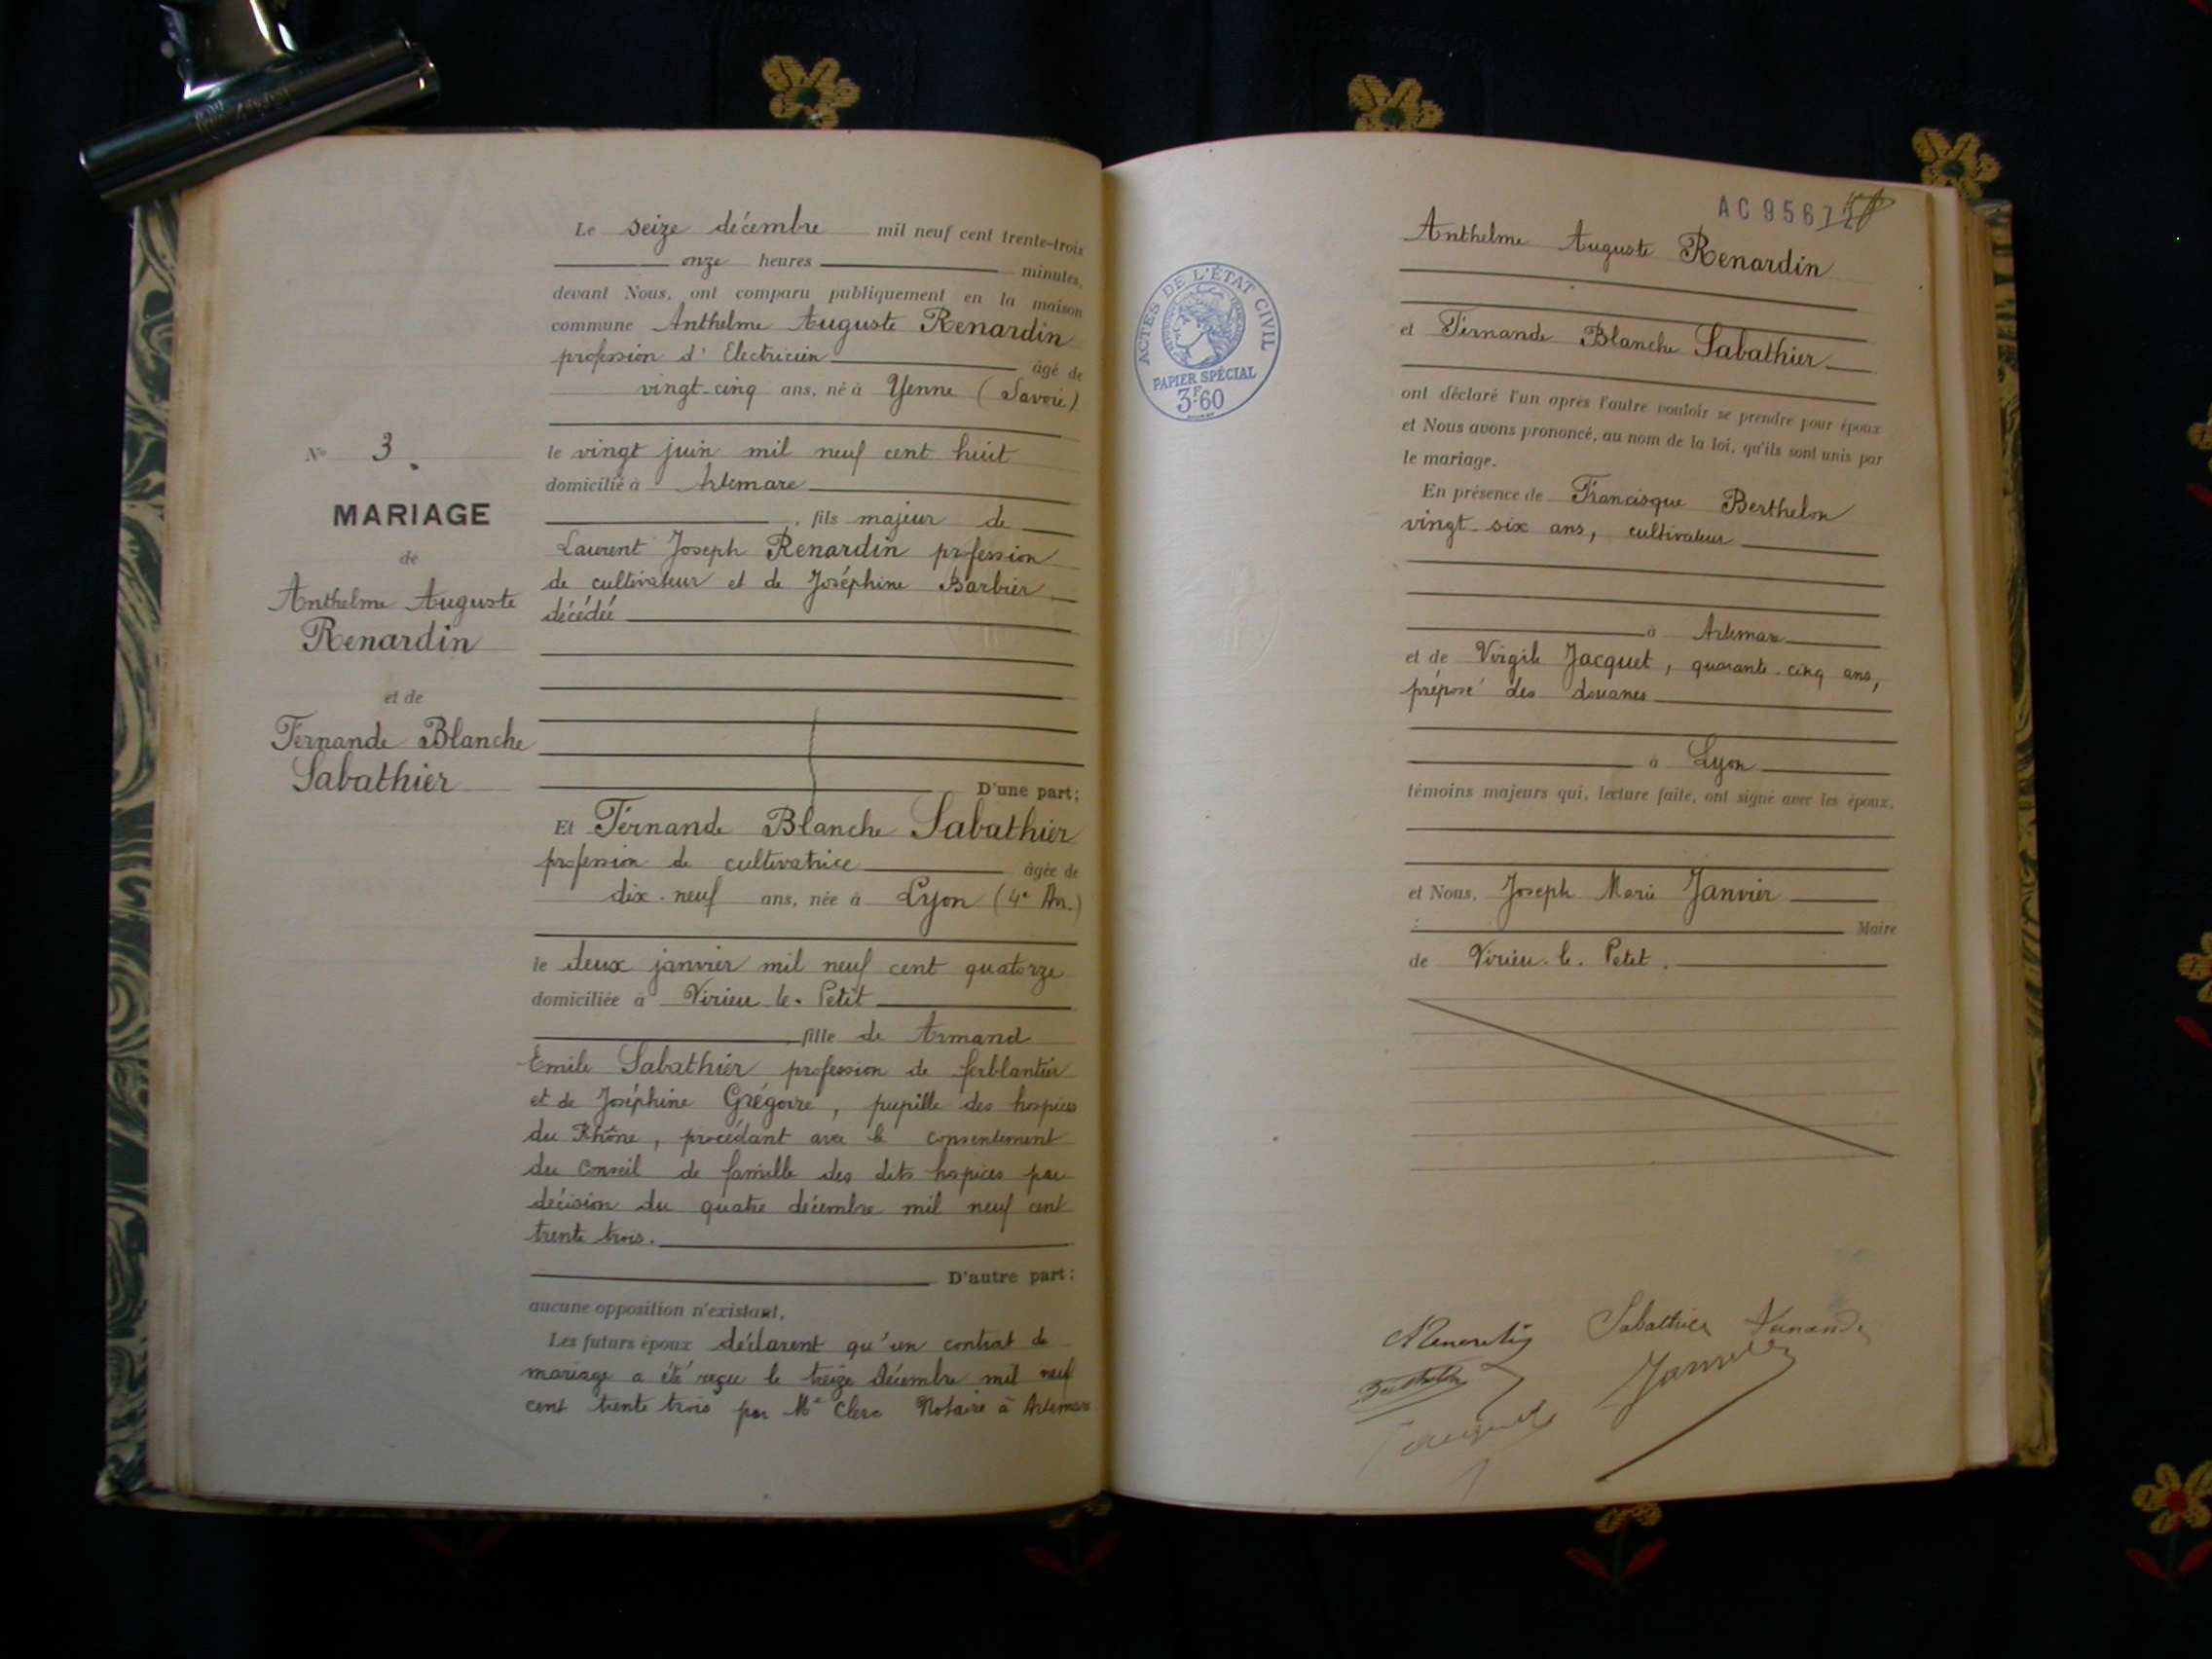 Le seize décembre mil neuf cent trente-trois
onze heures minutes,
devant Nous, ont comparu publiquement en la maison
commune Anthelme Auguste Renardin
profession d' Electricien âgé de
vingt-cinq ans, né à Yenne (Savoie)
le vingt juin mil neuf cent huit
domicilié à Artemare
, fils majeur de
Laurent Joseph Renardin profession
de cultivateur et de Joséphine Barbier
décédée
D'une part;
N° 3.
MARIAGE
de
Anthelme Auguste
Renardin
et de
Fernande Blanche
Sabathier
Et Fernande Blanche Sabathier
profession de cultivatrice âgée de
dix-neuf ans, née à Lyon (4e Arr.)
le deux janvier mil neuf cent quatorze
domiciliée à Virieu-le-Petit
, fille de Armand
Emile Sabathier profession de ferblantier
et de Joséphine Grégoire, pupille des hospices
du Rhône, procédant avec le consentement
du Conseil de famille des dits hospices par
décision du quatre décembre mil neuf cent
trente trois.
D'autre part;
aucune opposition n'existant,
Les futurs époux déclarent qu'un contrat de
mariage a été reçu le treize décembre mil neuf
cent trente trois par Me Clerc Notaire à Artemare
AC 9567
ACTES DE L'ÉTAT CIVIL
PAPIER SPÉCIAL
3F.60
Anthelme Auguste Renardin
et Fernande Blanche Sabathier
ont déclaré l'un après l'autre vouloir se prendre pour époux
et Nous avons prononcé, au nom de la loi, qu'ils sont unis par
le mariage.
En présence de Francisque Berthelon
vingt-six ans, cultivateur
à Artemare
et de Virgile Jacquet, quarante-cinq ans,
préposé des douanes
à Lyon
témoins majeurs qui, lecture faite, ont signé avec les époux,
et Nous, Joseph Marie Janvier
Maire
de Virieu-le-Petit.
Sabathier Fernande
Berthelon
Janvier
Jacquet